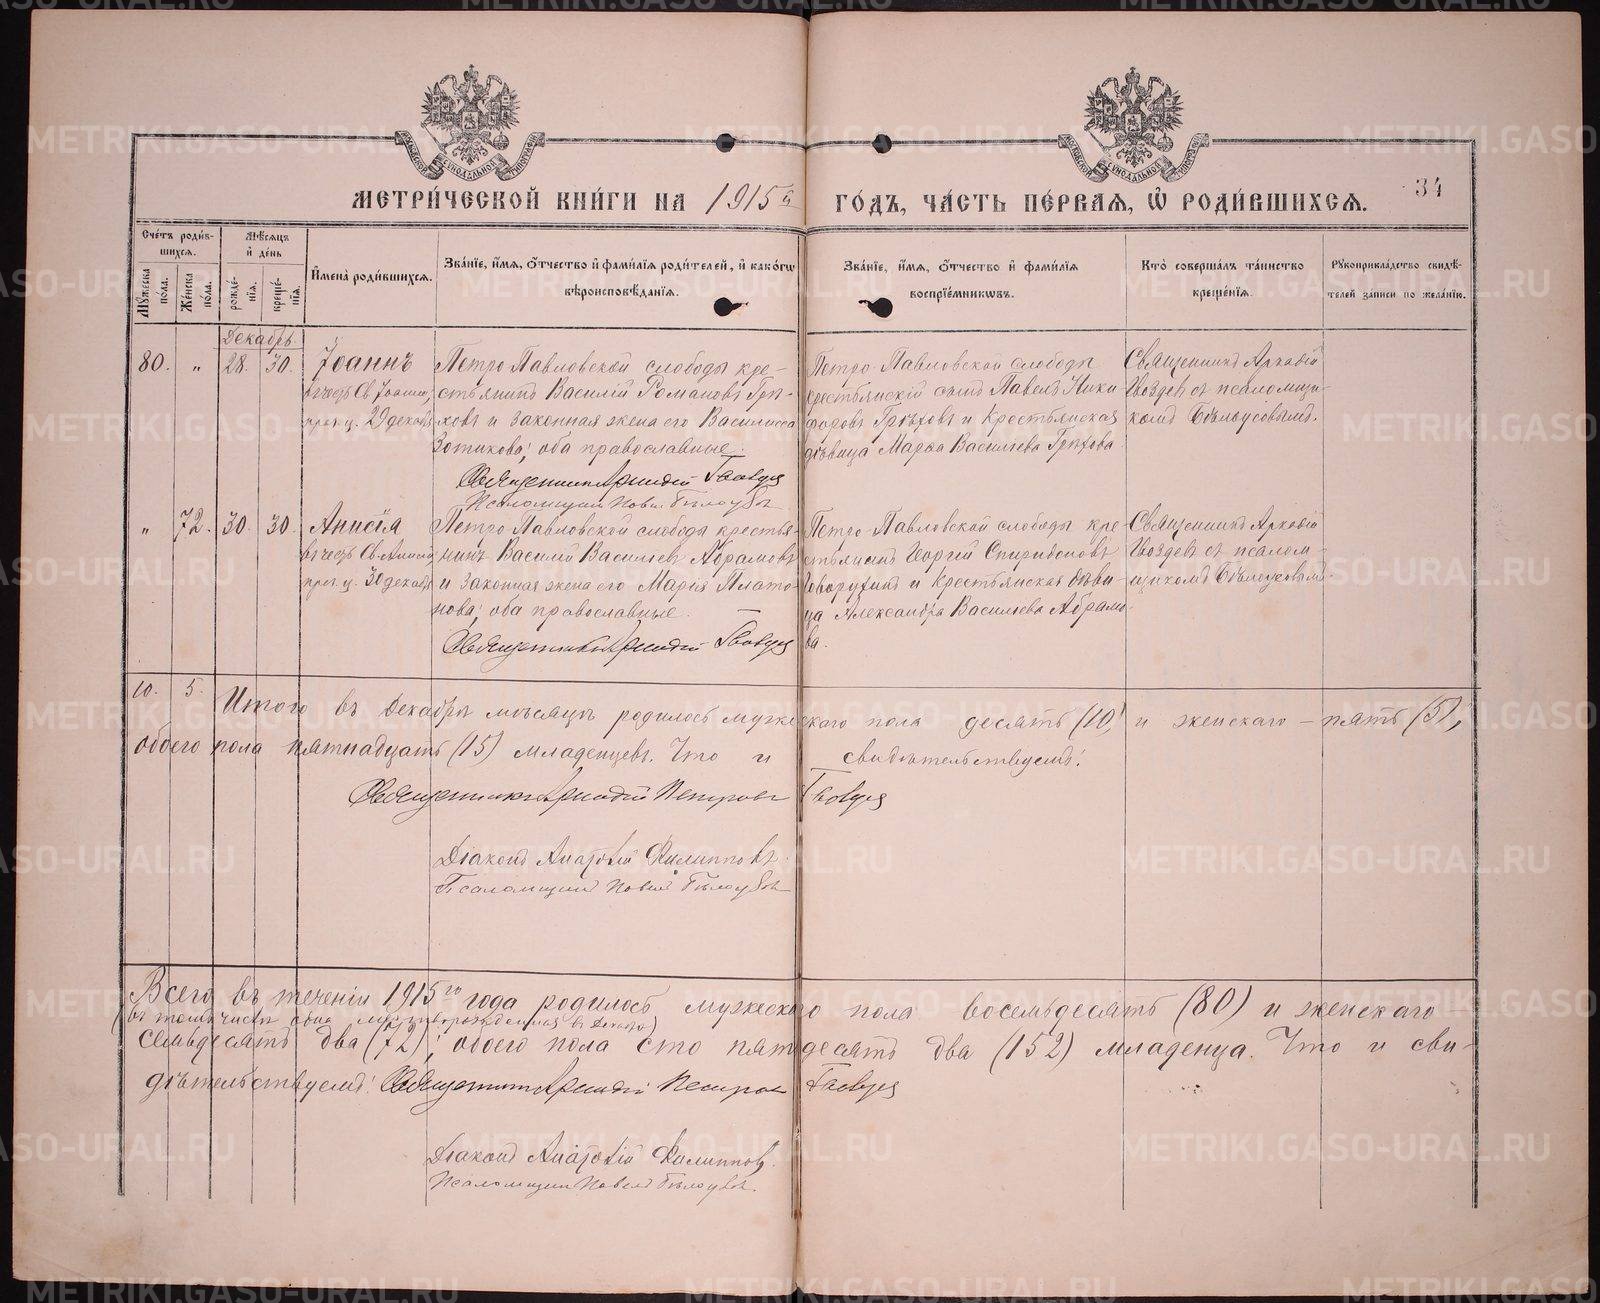 МЕТРИЧЕСКОЙ КНИГИ НА 1915й ГОДЪ, ЧАСТЬ ПЕРВАЯ, Ѿ РОДИВШИХСЯ. 34
Счетъ родив-
шихся.
Мѣсяцъ
и день
Мужеска
пола.
Женска
пола.
рожде-
нія.
креще-
нія.
Имена родившихся.
Званіе, имя, отчество и фамилія родителей, и какогѡ
вѣроисповѣданія.
Званіе, имя, отчество и фамилія
воспріемниковъ.
Кто совершалъ таинство
крещенія.
Рукоприкладство свидѣ-
телей записи по желанію.
Декабрь
80. " 28. 30.
Іоаннъ
въ честь Св. Іоанна,
праз. ц. 29 декабр.
Петро Павловской слободы кре-
стьянинъ Василій Романовъ Грѣ-
ховъ и законная жена его Василисса
Зотикова; оба православные.
Священникъ Аркадій Гвоздев
Псаломщикъ Павелъ Бѣлоусовъ
Петро Павловской слободы
крестьянскій сынъ Павелъ Ники
форовъ Грѣховъ и крестьянская
дѣвица Марѳа Васильева Грѣхова
Священникъ Аркадій
Гвоздевъ съ псаломщи-
комъ Бѣлоусовымъ.
" 72. 30. 30.
Анисія
въ честь Св. Анисіи,
праз. ц. 30 декабр.
Петро Павловской слободы крестья-
нинъ Василій Васильевъ Абрамовъ
и законная жена его Марія Плато-
нова; оба православные.
Священникъ Аркадій Гвоздев
Петро Павловской слободы кре
стьянинъ Георгій Спиридоновъ
и крестьянская дѣви-
ца Александра Васильева Абрамо-
ва.
Священникъ Аркадій
Гвоздевъ съ псалом-
щикомъ Бѣлоусовымъ.
10. 5.
Итого въ Декабрѣ мѣсяцѣ родилось мужескаго пола десять (10) и женскаго – пять (5),
обоего пола пятнадцать (15) младенцевъ. Что и свидѣтельствуемъ:
Священникъ Аркадій Петровъ Гвоздев
Діаконъ Анатолій Филипповъ.
Псаломщикъ Павелъ Бѣлоусовъ
Всего въ теченіи 1915го года родилось мужескаго пола восемьдесять (80) и женскаго
(въ томъ числѣ одна мертворожденная въ Декабрѣ)
семьдесять два (72); обоего пола сто пятьдесять два (152) младенца. Что и сви-
дѣтельствуемъ: Священникъ Аркадій Петров Гвоздев
Діаконъ Анатолій Филипповъ.
Псаломщикъ Павелъ Бѣлоусовъ.
METRIKI.GASO-URAL.RU